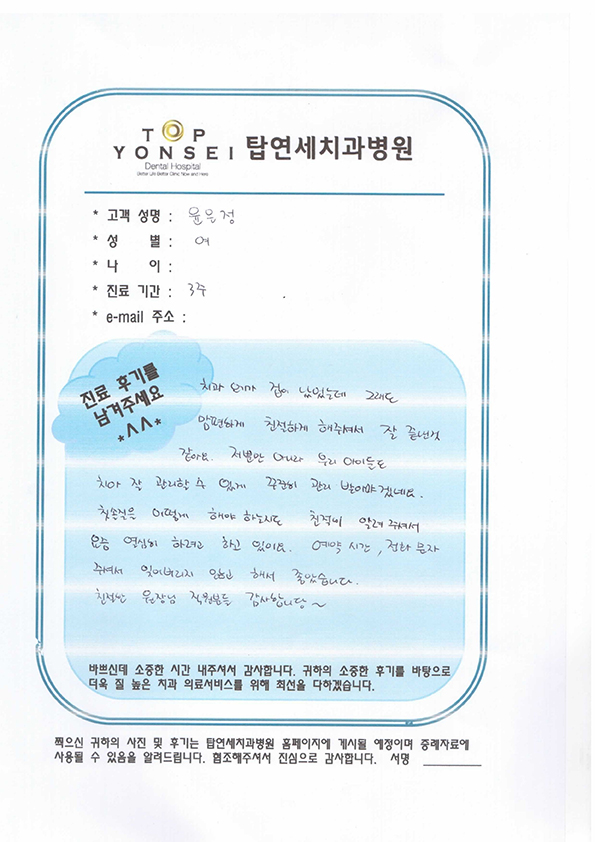 TOP
YONSEI 탑연세치과병원
Dental Hospital
Better Life Better Clinic Now and Here
* 고객 성명 : 윤은정
* 성 별 : 여
* 나 이 :
* 진료 기간 : 3주
* e-mail 주소 :
진료 후기를
남겨주세요
*^^*
치과 오기가 겁이 났었는데 그래도
맘편하게 친절하게 해주셔서 잘 끝낸것
같아요. 저뿐만 아니라 우리 아이들도
치아 잘 관리할 수 있게 꾸준히 관리 받아야겠네요.
칫솔질은 어떻게 해야 하는지도 친절히 알려 주셔서
요즘 열심히 하려고 하고 있어요. 예약 시간, 전화 문자
주셔서 잊어버리지 않고 해서 좋았습니다.
친절한 원장님 직원분들 감사합니당~
바쁘신데 소중한 시간 내주셔서 감사합니다. 귀하의 소중한 후기를 바탕으로
더욱 질 높은 치과 의료서비스를 위해 최선을 다하겠습니다.
찍으신 귀하의 사진 및 후기는 탑연세치과병원 홈페이지에 게시될 예정이며 증례자료에
사용될 수 있음을 알려드립니다. 협조해주셔서 진심으로 감사합니다. 서명